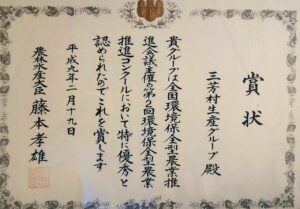 賞状
三芳村生産グループ殿
貴グループは全国環境保全型農業推
進会議主催の第2回環境保全型農業
推進コンクールにおいて特に優秀と
認められたのでこれを賞します
平成九年二月十九日
農林水産大臣 藤本孝雄